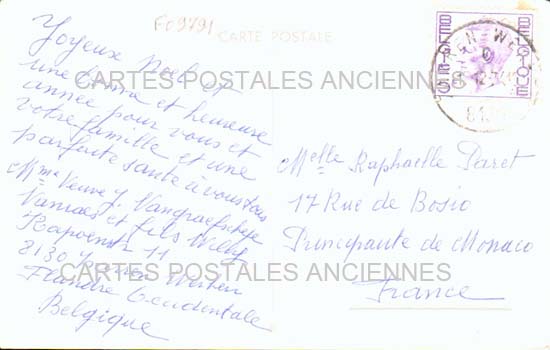 F09791
CARTE POSTALE
Joyeux Noël et
une bonne et heureuse
année pour vous et
votre famille et une
parfaite santé à vous tous
Mme Veuve J.
et fils Willy
11
8130
Flandre Occidentale
Belgique
BELGIQUE
BELGIË
Melle Raphaelle Daret
17 Rue de Bosio
Principaute de Monaco
France
CARTES POSTALES ANCIENNES
CARTES POSTALES ANCIENNES